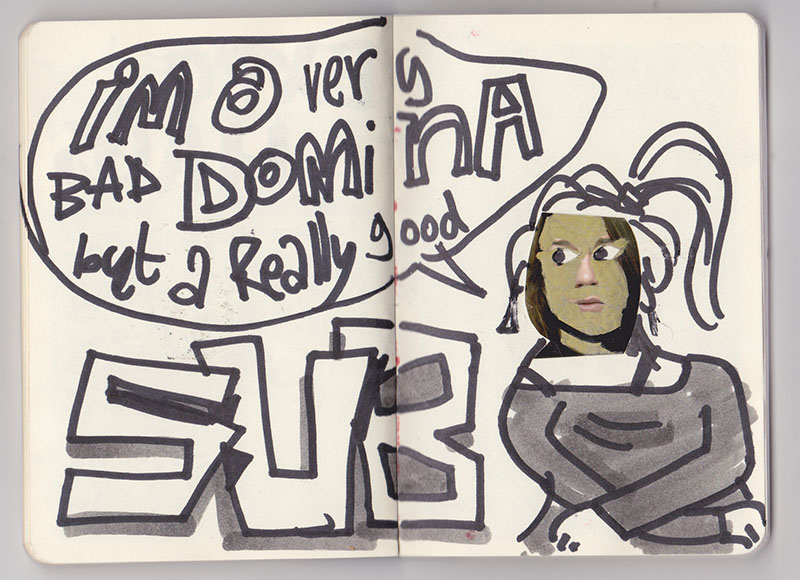 i'M a very
BAD DOMinA
but a Really good
SUB